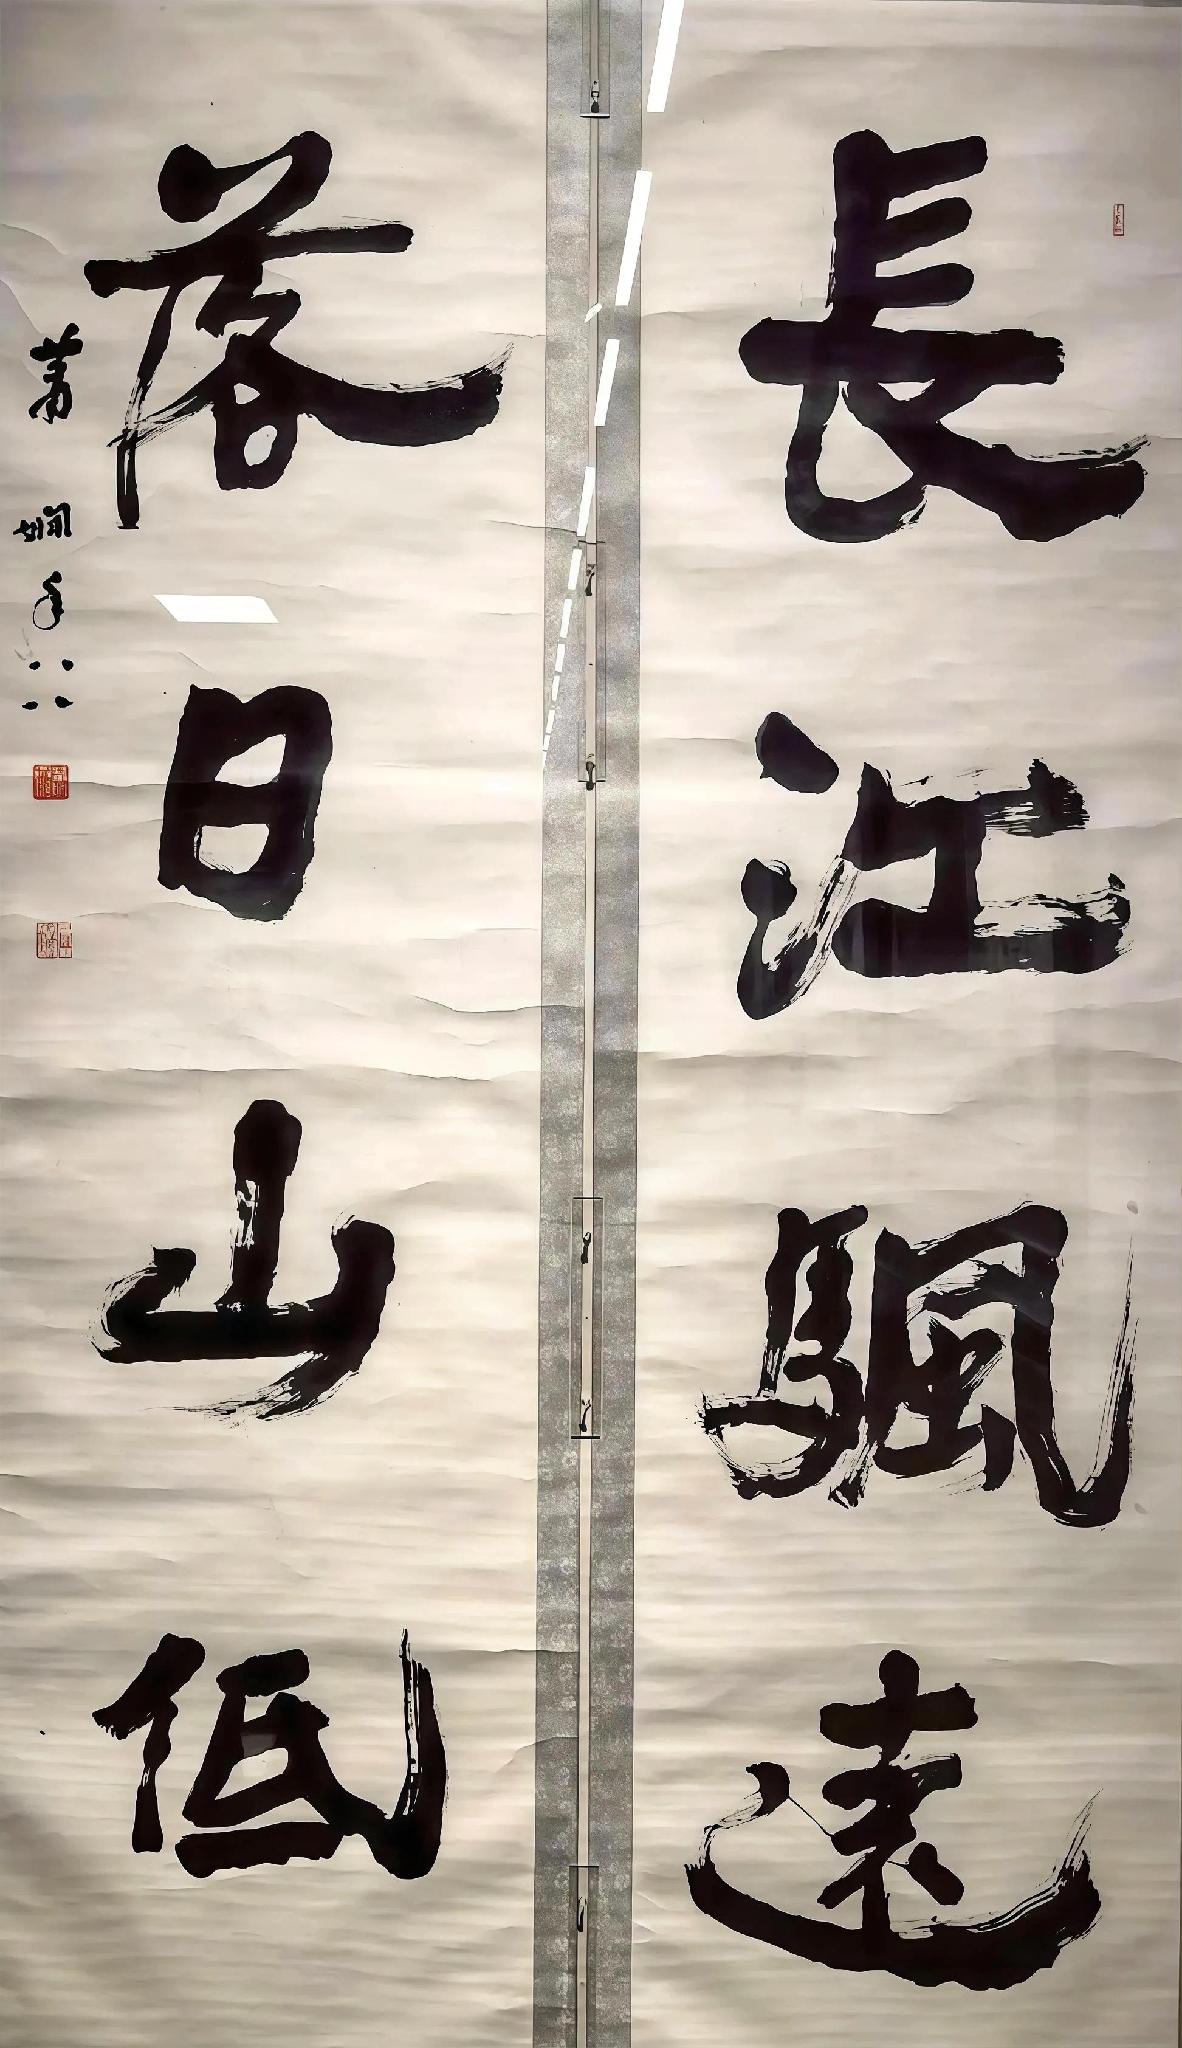 長江颿遠
落日山低
蕭嫻年八八